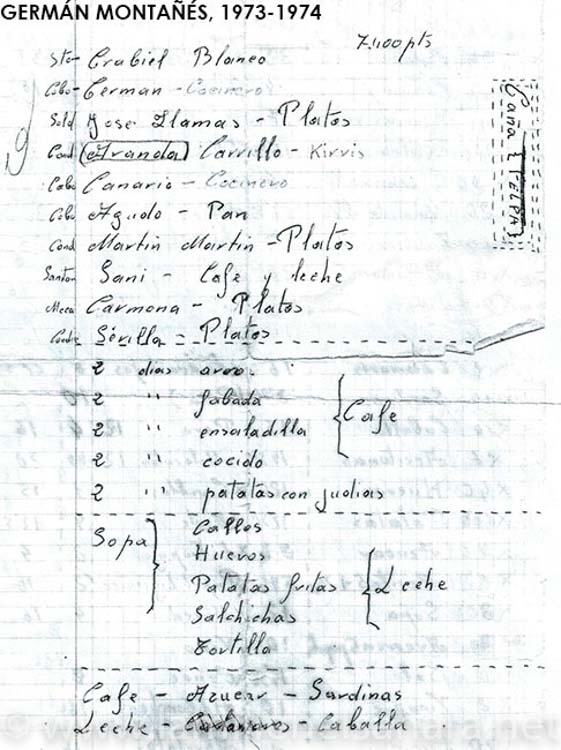 GERMÁN MONTAÑÉS, 1973-1974
7.400 pts
Sto- Grabiel Blanco
Cabo- German - Cocinero
Sold Jose Llamas - Platos
Cond (Aranda) Carrillo - Kirvis
Cabo Canario - Cocinero
Cabo Agudo - Pan
Cond Martin Martin - Platos
Sani - Cafe y leche
Meca Carmona - Platos
Sevilla - Platos
Caña { FELPA }
2 dias arro.
2 " fabada
2 " ensaladilla
2 " cocido
2 " patatas con judias
Cafe
Sopa
Callos
Huevos
Patatas fritas
Salchichas
Tortilla
Leche
Cafe - Azucar - Sardinas
Leche - Caballa